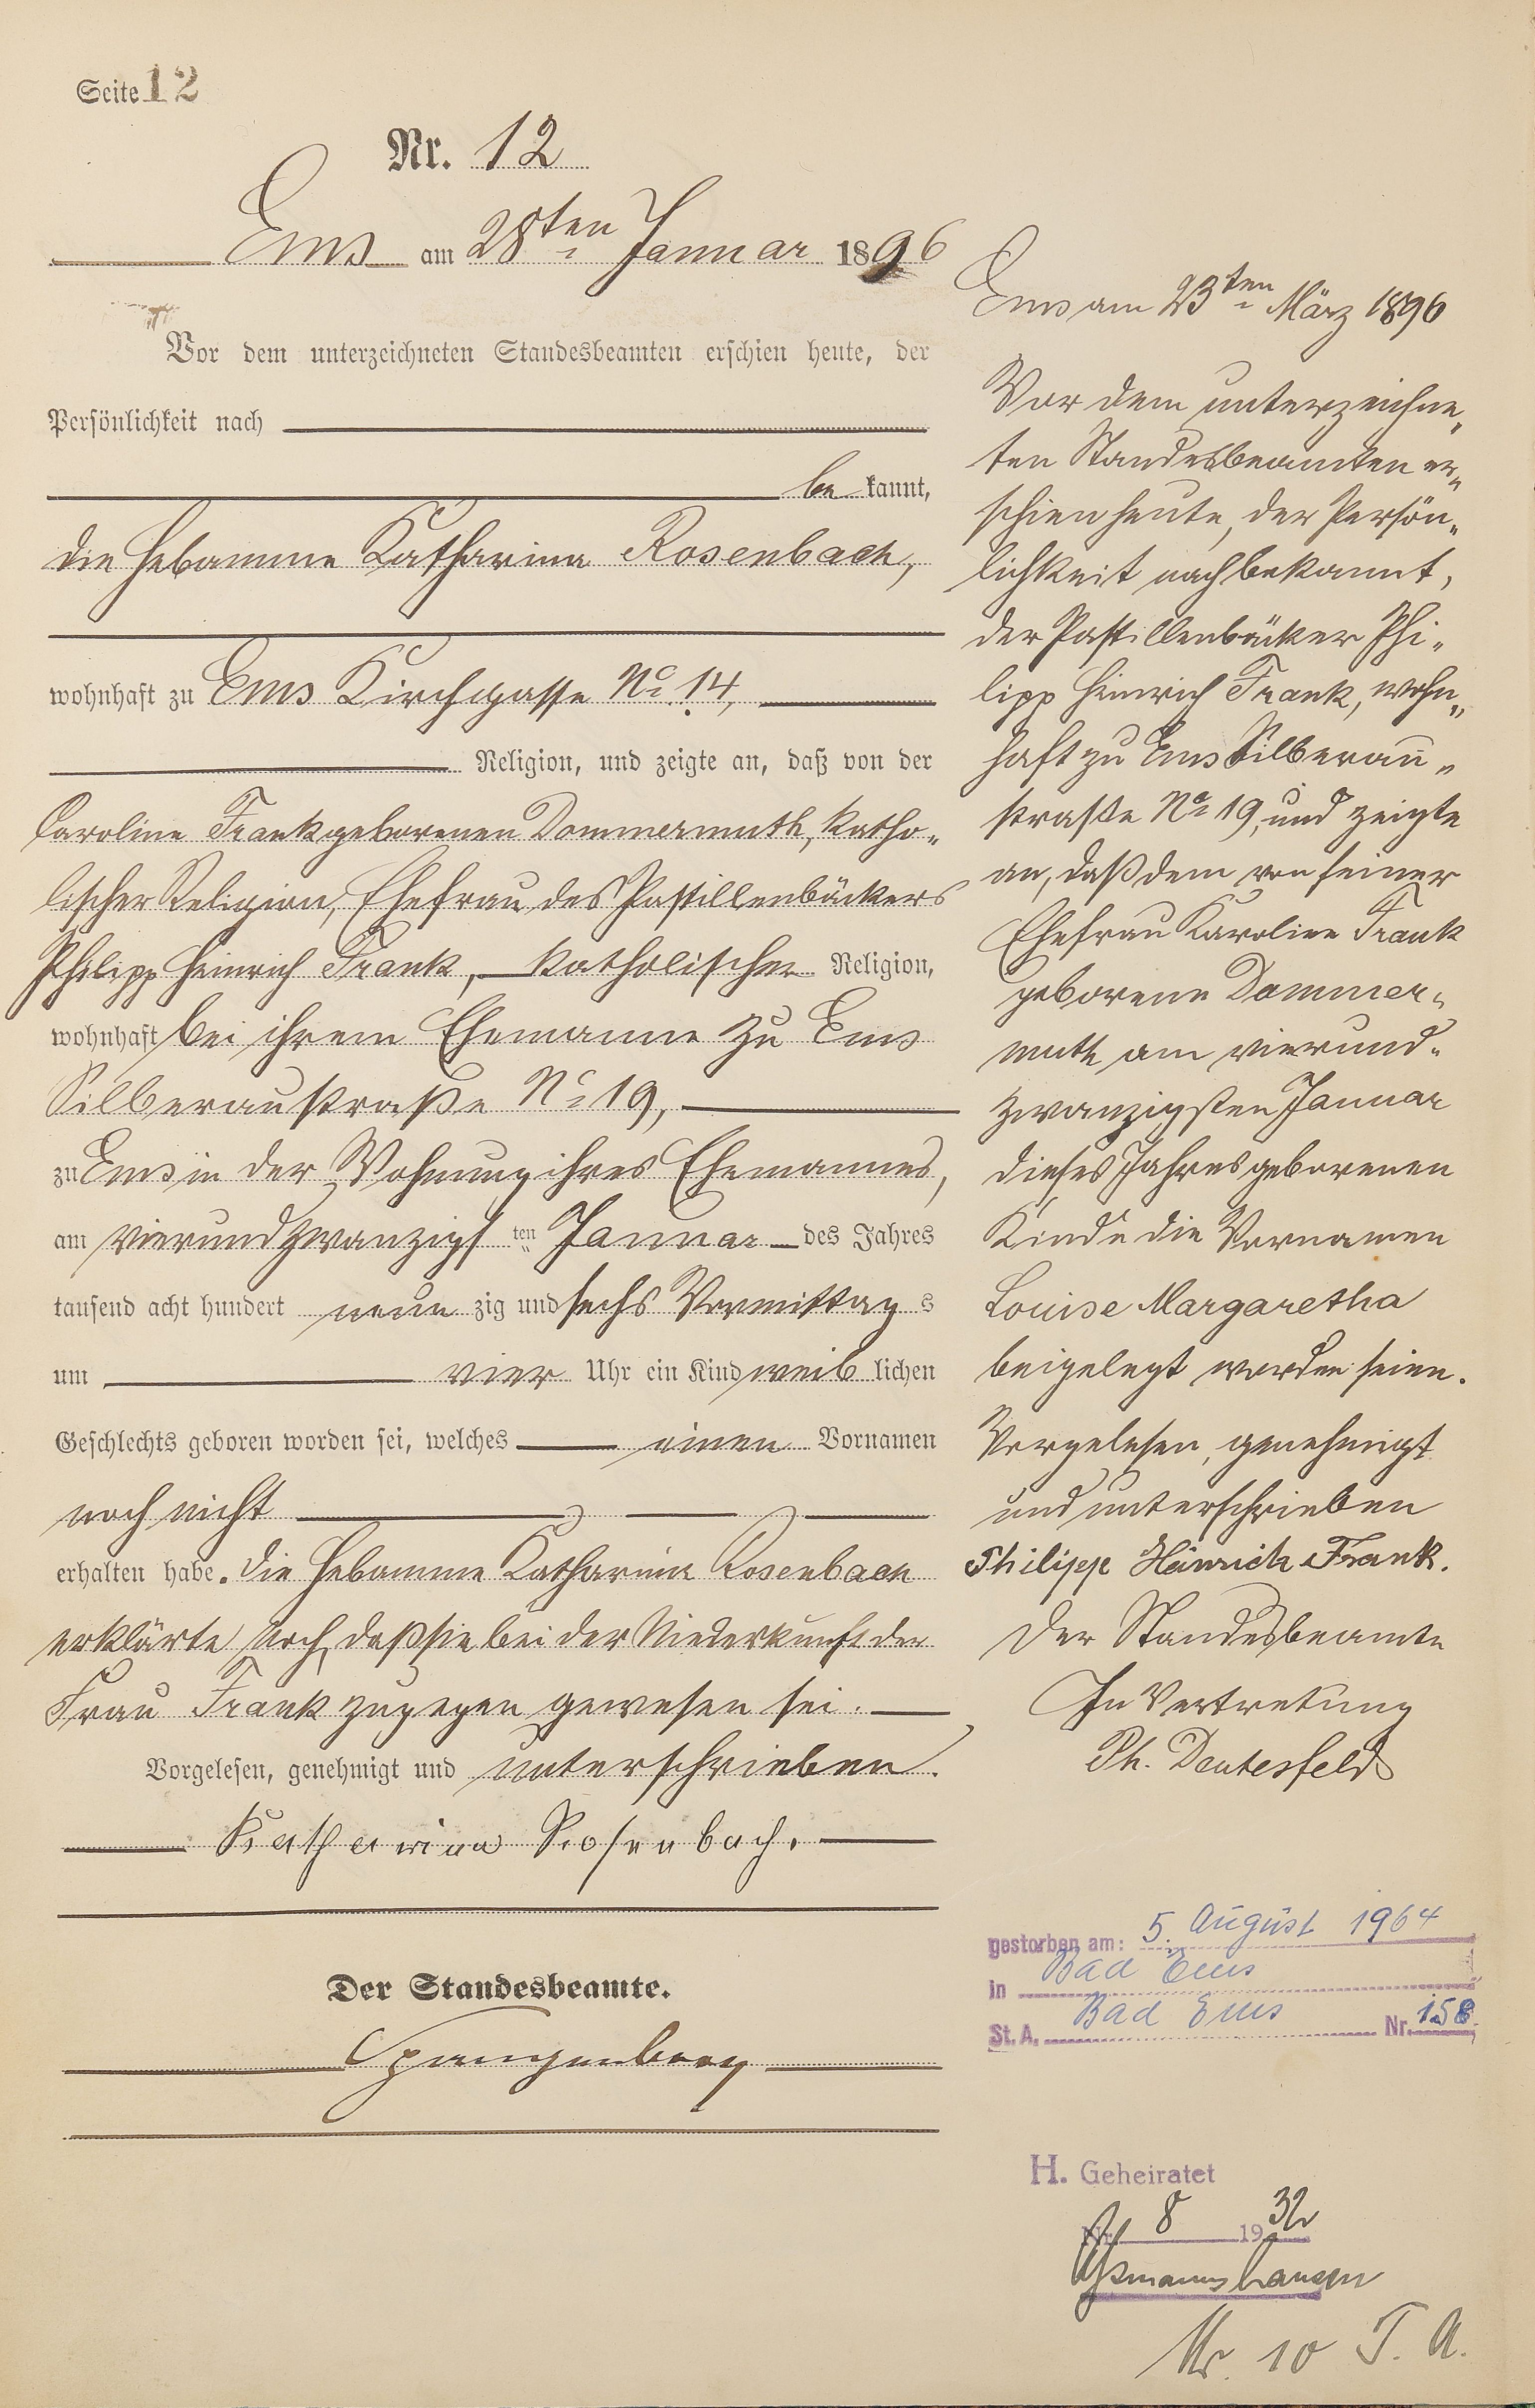 Seite 12
Nr. 12
Ems am 28ten Januar 1896
Vor dem unterzeichneten Standesbeamten erschien heute, der
Persönlichkeit nach
be kannt,
die Hebamme Katharina Rosenbach,
wohnhaft zu Ems Kirchgasse No 14,
Religion, und zeigte an, daß von der
Caroline Frank geborenen Dommermuth, katho„
lischer Religion, Ehefrau des Pastillenbäckers
Philipp Heinrich Frank, katholischer Religion,
wohnhaft bei ihrem Ehemanne zu Ems
Silberaustraße No 19,
zu Ems in der Wohnung ihres Ehemannes,
am vierundzwanzigsten Januar des Jahres
tausend acht hundert neun zig und sechs Vormittag s
um vier Uhr ein Kind weib lichen
Geschlechts geboren worden sei, welches einen Vornamen
noch nicht
erhalten habe. Die Hebamme Katharina Rosenbach
erklärte noch, daß sie bei der Niederkunft der
Frau Frank zugegen gewesen sei.
Vorgelesen, genehmigt und unterschrieben.
Katharina Rosenbach.
Der Standesbeamte.
Spangenberg
Ems am 23ten März 1896
Vor dem unterzeichne„
ten Standesbeamten er„
schien heute, der Persön„
lichkeit nach bekannt,
der Pastillenbäcker Phi„
lipp Heinrich Frank, wohn„
haft zu Ems Silberau„
straße No 19, und zeigte
an, daß dem von seiner
Ehefrau Karoline Frank
geborene Dommer„
muth am vierund„
zwanzigsten Januar
dieses Jahres geborenen
Kinde die Vornamen
Louise Margaretha
beigelegt worden seien.
Vorgelesen, genehmigt
und unterschrieben
Philipp Heinrich Frank.
Der Standesbeamte
In Vertretung
Ph. Deutesfeld
gestorben am: 5. August 1964
in Bad Ems
St. A. Bad Ems Nr. 158
H. Geheiratet
Nr. 8 1932
Aßmannshausen
Nr. 10 T. A.